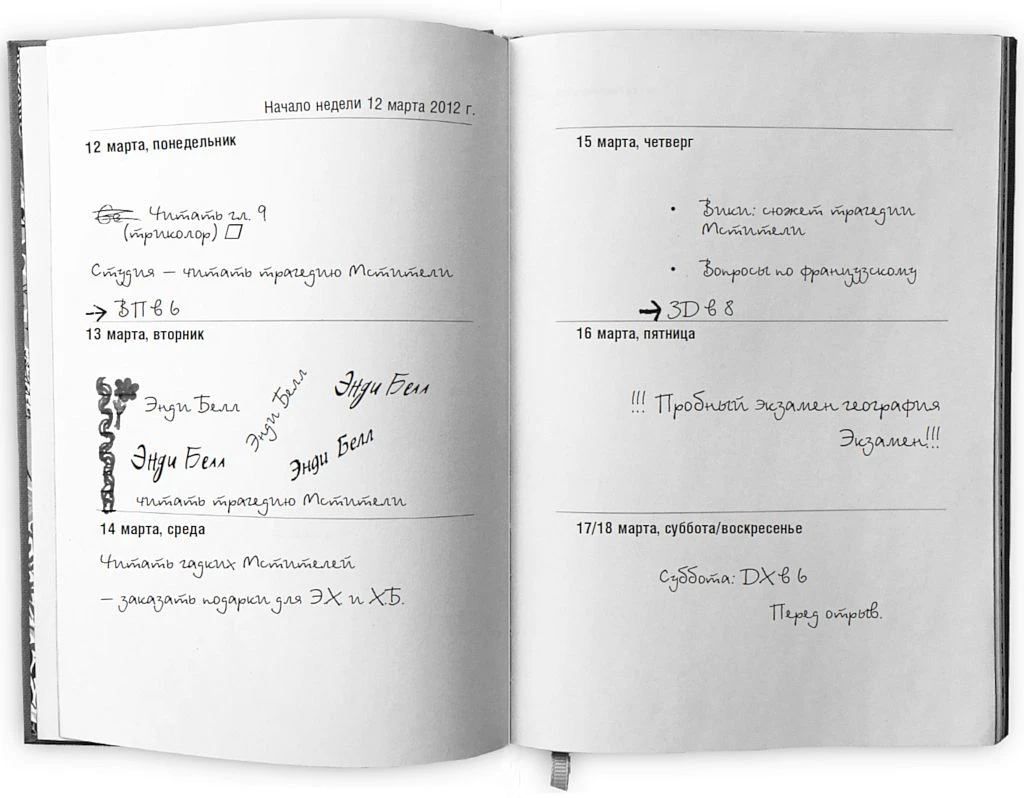 Начало недели 12 марта 2012 г.
12 марта, понедельник
Читать гл. 9
(триколор)
Студия – читать трагедию Мстители
→ ВП в 6
13 марта, вторник
Энди Белл
Энди Белл
Энди Белл
Энди Белл
Энди Белл
читать трагедию Мстители
14 марта, среда
Читать гадких Мстителей
– заказать подарки для ЭХ. и Х.Б.
15 марта, четверг
• Вики: сюжет трагедии
Мстители
• Вопросы по французскому
→ ЗD в 8
16 марта, пятница
!!! Пробный экзамен география
Экзамен!!!
17/18 марта, суббота/воскресенье
Суббота: DX в 6
Перед отрыв.